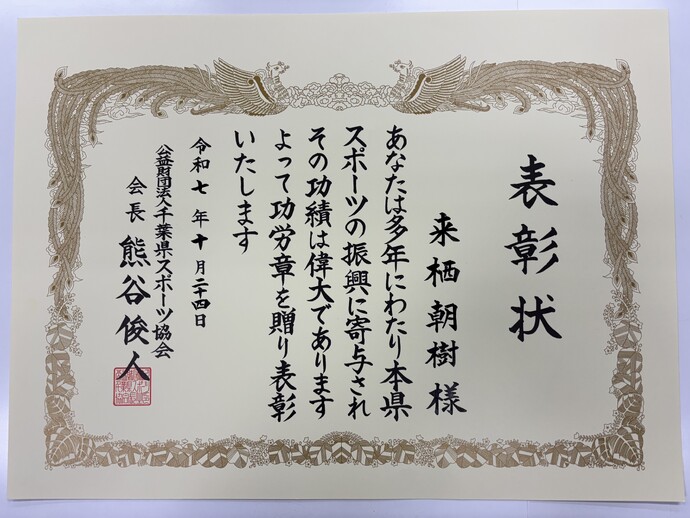 表彰状
来栖朝樹様
あなたは多年にわたり本県
スポーツの振興に寄与され
その功績は偉大であります
よって功労章を贈り表彰
いたします
令和七年十月二十四日
公益財団法人千葉県スポーツ協会
会長 熊谷俊人